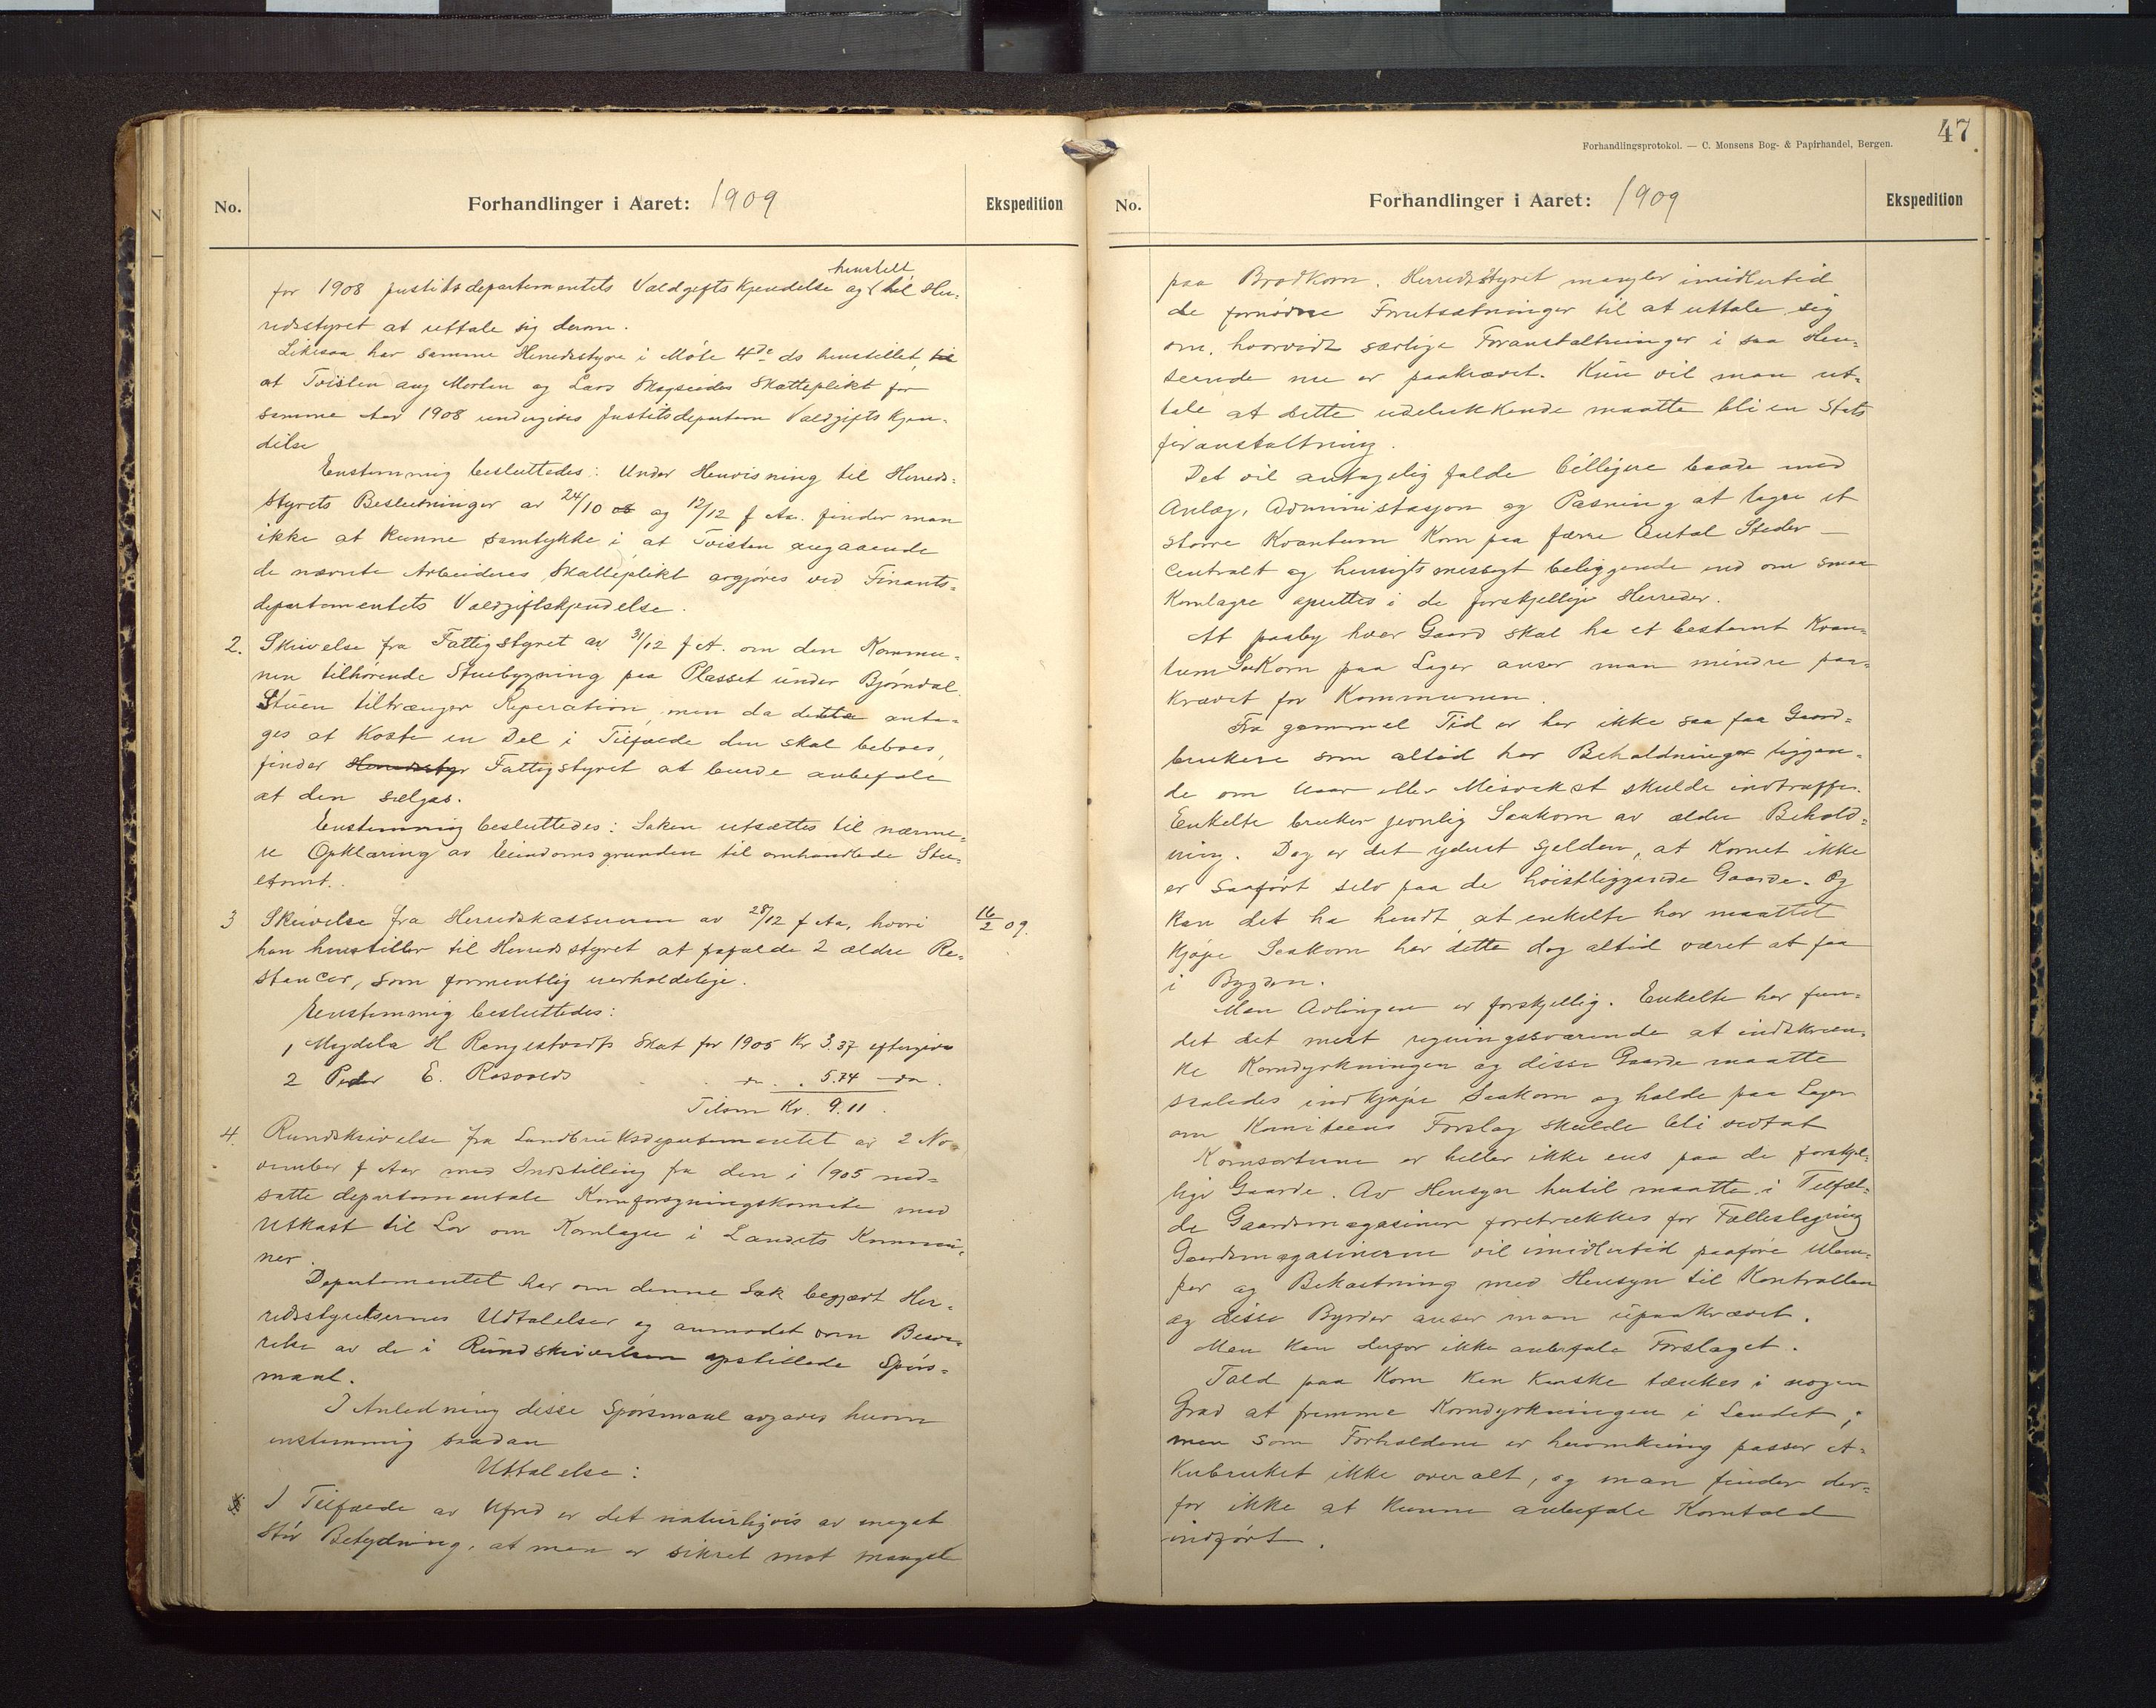 No. Forhandlinger i Aaret: 1909 Ekspedition
henstillt
for 1908 Justitsdepartementets Voldgifts Kjendelse og til Her-
redsstyret at uttale sig derom.
Likesaa har samme Herredsstyre i Møte 4de ds henstillet, til
at Tvisten ang Morten og Lars Skattepligt for
samme Aar 1908 undergives Justitsdepartem Voldgifts Kjen-
delse
Enstemmig besluttedes: Under Henvisning til Herreds-
styrets Beslutninger av 24/10 08 og 12/12 f Aa. finder man
ikke at kunne samtykke i at Tvisten angaaende
de nævnte Arbeideres Skatteplikt avgjøres ved Finants-
departementets Voldgiftskjendelse.
2. Skrivelse fra Fattigstyret av 31/12 f A. om den Kommu-
nen tilhørende Stuebygning paa Plasset under Bjørndal.
Stuen tiltrænger Reperation, men da dette anta-
ges at koste en Del i Tilfælde den skal beboes,
finder Herredsstyr Fattigstyret at burde anbefale
at den sælges.
Enstemmig besluttedes: Saken utsættes til nærme-
re Opklaring av Eiendomsgrunden til omhandlede Stu-
etomt.
3 Skrivelse fra Herredskassereren av 28/12 f Aa, hvori 16/2 09.
han henstiller til Herredsstyret at frafalde 2 ældre Re-
stancer, som formentlig uerholdelige.
Enstemmig besluttedes:
1 Magdela H Rangestvedts Skat for 1905 Kr 3.37 eftergives
2 Peder E. Rosvolds . . do. . 5.74 do.
Tilsm Kr. 9.11.
4. Rundskrivelse fra Landbruksdepartementet av 2 No-
vember f Aar med Indstilling fra den i 1905 ned-
satte departementale Kornforsyningskomite med
Utkast til Lov om Kornlagre i Landets Kommu-
ner.
Departementet har om denne Sak begjært Her-
redsstyrelsernes Udtalelser og anmodet om Besva-
relse av de i Rundskrivelsen opstillede Spørs-
maal.
I Anledning disse Spørsmaal avgaves huom
enstemmig saadan
Uttalelse:
I Tilfælde av Ufred er det naturligvis av meget
stor Betydning, at man er sikret mot Mangel
Forhandlingsprotokol. — C. Monsens Bog- & Papirhandel, Bergen. 47
No. Forhandlinger i Aaret: 1909 Ekspedition
paa Brødkorn. Herredsstyret mangler imidlertid
de fornødne Forutsætninger til at uttale sig
om, hvorvidt særlige Foranstaltninger i saa Hen-
seende nu er paakrævet. Kun vil man ut-
tale at dette udelukkende maatte bli en Stats
foranstaltning.
Det vil antagelig falde billigere baade med
Anlæg, Administrasjon og Pasning at lagre et
større Kvantum Korn paa færre Antal Steder —
centralt og hensigtsmessigt beliggende end om smaa
Kornlagre oprettes i de forskjellige Herreder.
At paaby hver Gaard skal ha et bestemt Kvan-
tum Saakorn paa Lager anser man mindre paa-
krævet for Kommunen.
Fra gammel Tid er her ikke saa faa Gaard-
brukere som altid har Beholdninger liggen-
de om Uaar eller Misvekst skulde indtræffe.
Enkelte bruker jevnlig Saakorn av ældre Behold-
ning. Dog er det yderst sjelden, at Kornet ikke
er saafört selv paa de høistliggende Gaarde. Og
kan det ha hendt at enkelte har maattet
kjøpe Saakorn har dette dog altid været at faa
i Bygden.
Men Avlingen er forskjellig. Enkelte har fun-
det det mest regningssvarende at indskræn-
ke Korndyrkningen og disse Gaarde maatte
saaledes indkjøpe Saakorn og holde paa Lager
om Komiteens Forslag skulde bli vedtat
Kornsorterne er heller ikke ens paa de forskjel-
lige Gaarde. Av Hensyn hertil maatte i Tilfæl-
de Gaardsmagasiner foretrækkes for Fælleslagring
Gaardsmagasinerne vil imidlertid paaføre Ulem-
per og Bekostning med Hensyn til Kontrollen
og disse Byrder anser man upaakrævet.
Man kan derfor ikke anbefale Forslaget.
Told paa Korn kan kanske tænkes i nogen
Grad at fremme Korndyrkningen i Landet;
men som Forholdene er heromkring passer A-
kerbruket ikke overalt, og man finder der-
for ikke at kunne anbefale Korntold
indført.